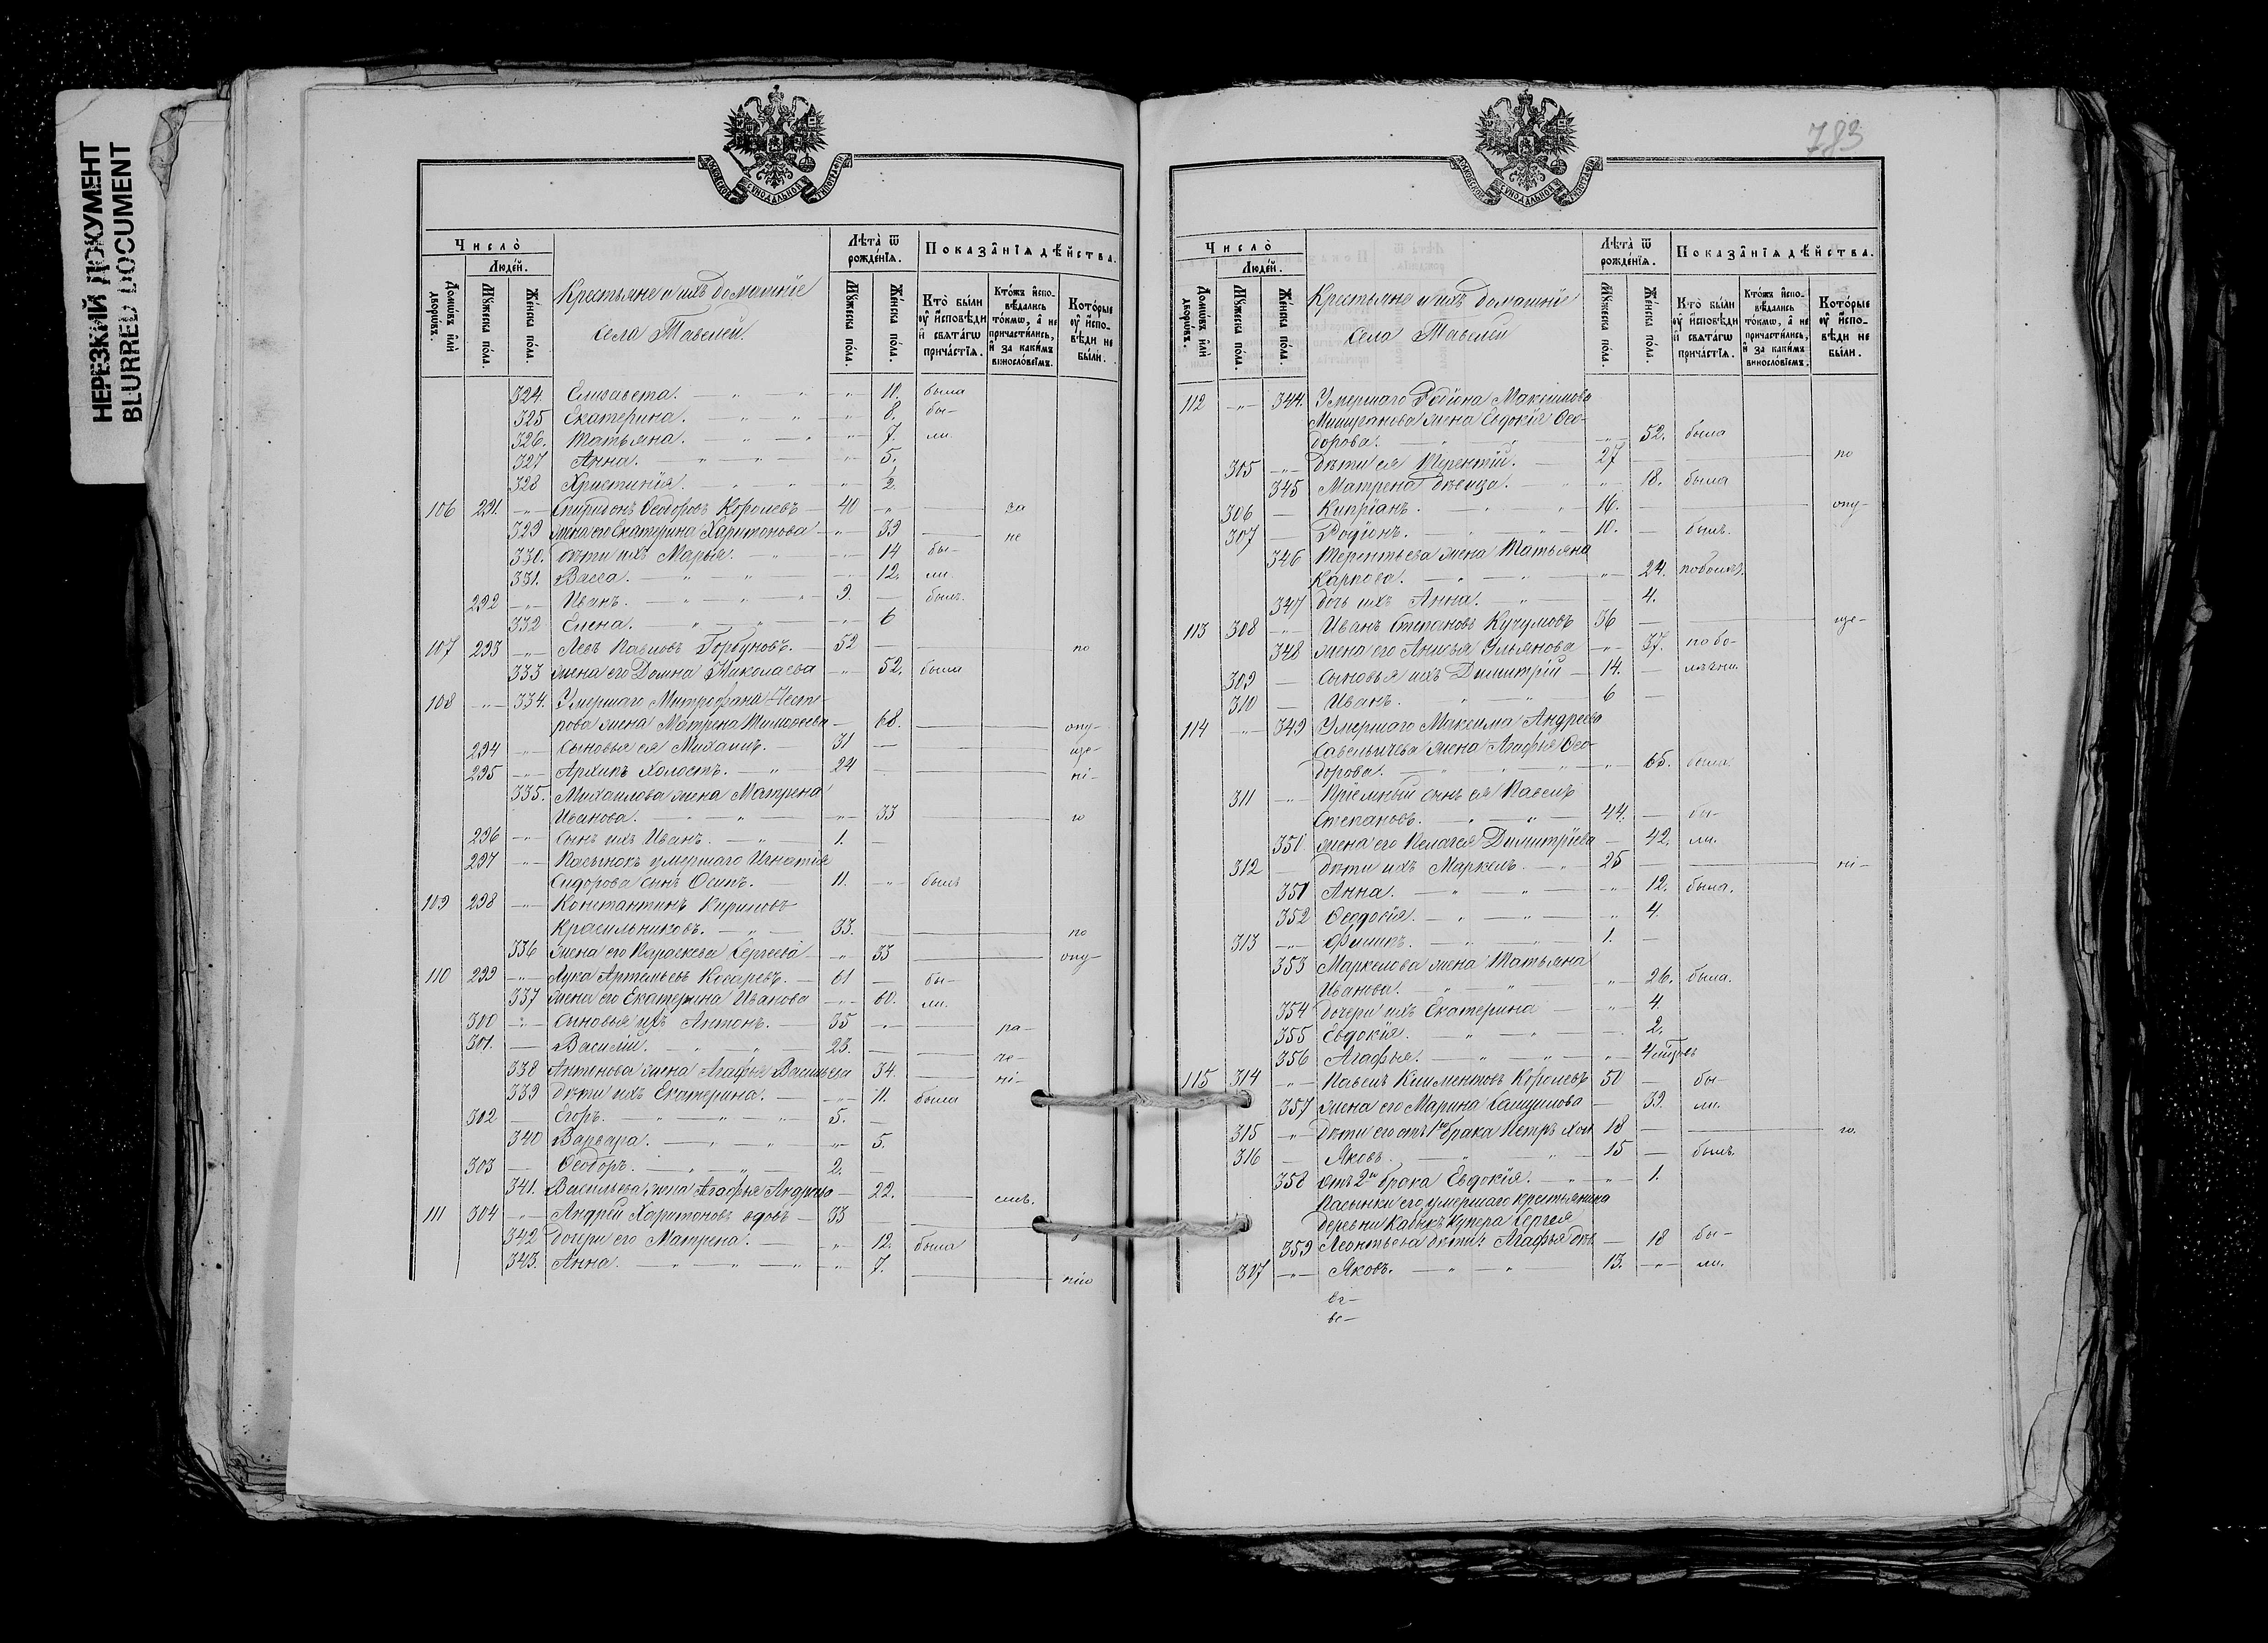 НЕРЕЗКИЙ ДОКУМЕНТ
BLURRED DOCUMENT
МОСКОВСКОЙ СѴНОДАЛЬНОЙ ТИПОГРАФІИ
Число̀
Люде́й.
Домѡ́въ и҆лѝ дворѡ́въ.
Мꙋ́жеска по́ла.
Же́нска по́ла.
Крестьяне и ихъ домашніе
села Тавелей.
Лѣта̀ ѿ рожде́нїѧ.
Мꙋ́жеска по́ла.
Же́нска по́ла.
Показа̑нїѧ дѣ́йства.
Кто̀ бы́ли ᲂу҆ и҆сповѣди и҆ свѧта́гѡ прича́стїѧ.
Кто́жъ и҆сповѣ́дались то́кмѡ, а҆ не причасти́лись, и҆ за каки́мъ винословїемъ.
Кото́рые ᲂу҆ и҆сповѣди не бы́ли.
324. Елисавета. — " — " 11. была
325 Екатерина. — " — " 8. бы-
326. Татьяна. — " — " 7. ли.
327 Анна. — " — " 5.
328 Христинія. — " — " 2.
106 291. Спиридонъ Ѳеодоровъ Королевъ 40 за
329 жена его Екатерина Харитонова 39 не
330. дѣти ихъ Марья. 14 бы-
331. Васса. — " — " 12. ли.
292 Иванъ. — " — " 9. былъ.
332 Елена. — " — " 6
107 293 Левъ Павловъ Горбуновъ. 52 по
333 жена его Домна Николаева 52. была
108 334. Умершаго Митрофана Несте-
рова жена Матрена Тимоѳеева 68. опу-
294 Сыновья ея Михаилъ. 31 ще-
295 Архипъ холостъ. 24 ні-
335. Михаилова жена Матрена
Иванова. 33 ю
296 Сынъ ихъ Иванъ. 1.
297 Пасынокъ умершаго Игнатія
Сидорова сынъ Осипъ. 11. былъ
109 298 Константинъ Кириловъ
Красильниковъ. 33. по
336 жена его Параскева Сергеева 33 опу-
110 299 Лука Артемьевъ Косаревъ. 61 бы-
337 жена его Екатерина Иванова 60. ли.
300 Сыновья ихъ Антонъ. 35 ра-
301. Василій. 23. че-
338 Антонова жена Агафья Васильева 34. ні-
339 дѣти ихъ Екатерина. 11. была
302 Егоръ. 5.
340 Варвара. 5.
303 Ѳеодоръ. 2.
341. Васильева жена Агафья Андреева 22. емъ.
111 304 Андрей Харитоновъ вдовъ 33
342 Дочери его Матрена. 12. была
343. Анна. 7. нію
783
МОСКОВСКОЙ СѴНОДАЛЬНОЙ ТИПОГРАФІИ
Число̀
Люде́й.
Домѡ́въ и҆лѝ дворѡ́въ.
Мꙋ́жеска по́ла.
Же́нска по́ла.
Крестьяне и ихъ домашніе
Села Тавелей
Лѣта̀ ѿ рожде́нїѧ.
Мꙋ́жеска по́ла.
Же́нска по́ла.
Показа̑нїѧ дѣ́йства.
Кто̀ бы́ли ᲂу҆ и҆сповѣди и҆ свѧта́гѡ прича́стїѧ.
Кто́жъ и҆сповѣ́дались то́кмѡ, а҆ не причасти́лись, и҆ за каки́мъ винословїемъ.
Кото́рые ᲂу҆ и҆сповѣди не бы́ли.
112 344. Умершаго Родіона Максимова
жена Евдокія Ѳео-
дорова. 52. была
305 дѣти ея Терентій. 27 по
345 Матрена дѣвица. 18. была
306 Кипріанъ. 16. опу-
307 Родіонъ. 10. былъ.
346 Терентьева жена Татьяна
Карпова. 24. по болѣз.
347 дочь ихъ Анна. 4.
113 308 Иванъ Степановъ Кучумовъ 36 ще-
348 жена его Анисья Ульянова 37. по бо-
309 Сыновья ихъ Димитрій 14. лѣзни.
310 Иванъ. 6
114 349 Умершаго Максима Андреева
Савельичева жена Агафья Ѳео-
дорова. 65. была
311 Пріемный сынъ ея Павелъ
Степановъ. 44. бы-
350 жена его Пелагея Димитріева 42. ли.
312 дѣти ихъ Маркелъ. 25 ні-
351 Анна. 12. была.
352 Ѳеодосія. 4.
313 Филипъ. 1.
353 Маркелова жена Татьяна
Иванова. 26. была.
354 дочери ихъ Екатерина 4.
355 Евдокія. 2.
356 Агафья. 4
115 314 Павелъ Климентовъ Королевъ 50 бы-
357 жена его Марина 39. ли.
315 дѣти его отъ 1го брака Петръ хол. 18 ю.
316 Яковъ. 15 былъ.
358 отъ 2го брака Евдокія. 1.
Пасынки его умершаго крестьянина
деревни Сергея
359 Леонтьева дѣти: Агафья дѣв. 18 бы-
317 Яковъ. 13. ли.